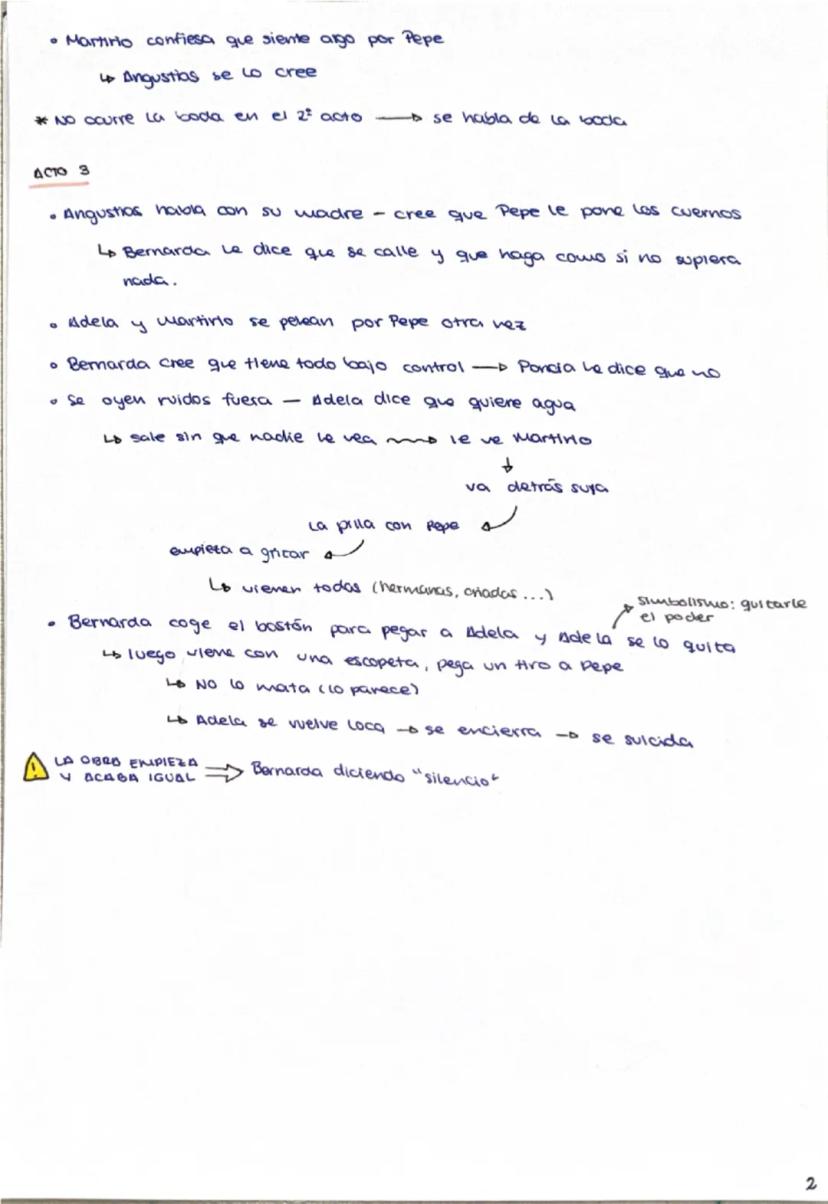 • Martirio confiesa que siente algo por Pepe
↳ Angustias se lo cree
* No ocurre la boda en el 2º acto → se habla de la boda
ACTO 3
• Angustias habla con su madre - cree que Pepe le pone los cuernos
↳ Bernarda le dice que se calle y que haga como si no supiera
nada.
• Adela y Martirio se pelean por Pepe otra vez
• Bernarda cree que tiene todo bajo control → Poncia le dice que no
• Se oyen ruidos fuera — Adela dice que quiere agua
↳ sale sin que nadie le vea → le ve Martirio
↓
va detrás suya
la pilla con Pepe ↙
empieza a gritar ↙
↳ vienen todas (hermanas, criadas ...)
↗ simbolismo: quitarle
el poder
• Bernarda coge el bastón para pegar a Adela y Adela se lo quita
↳ luego viene con una escopeta, pega un tiro a Pepe
↳ No lo mata (lo parece)
↳ Adela se vuelve loca → se encierra → se suicida
! LA OBRA EMPIEZA
Y ACABA IGUAL ⇒ Bernarda diciendo "silencio"
2